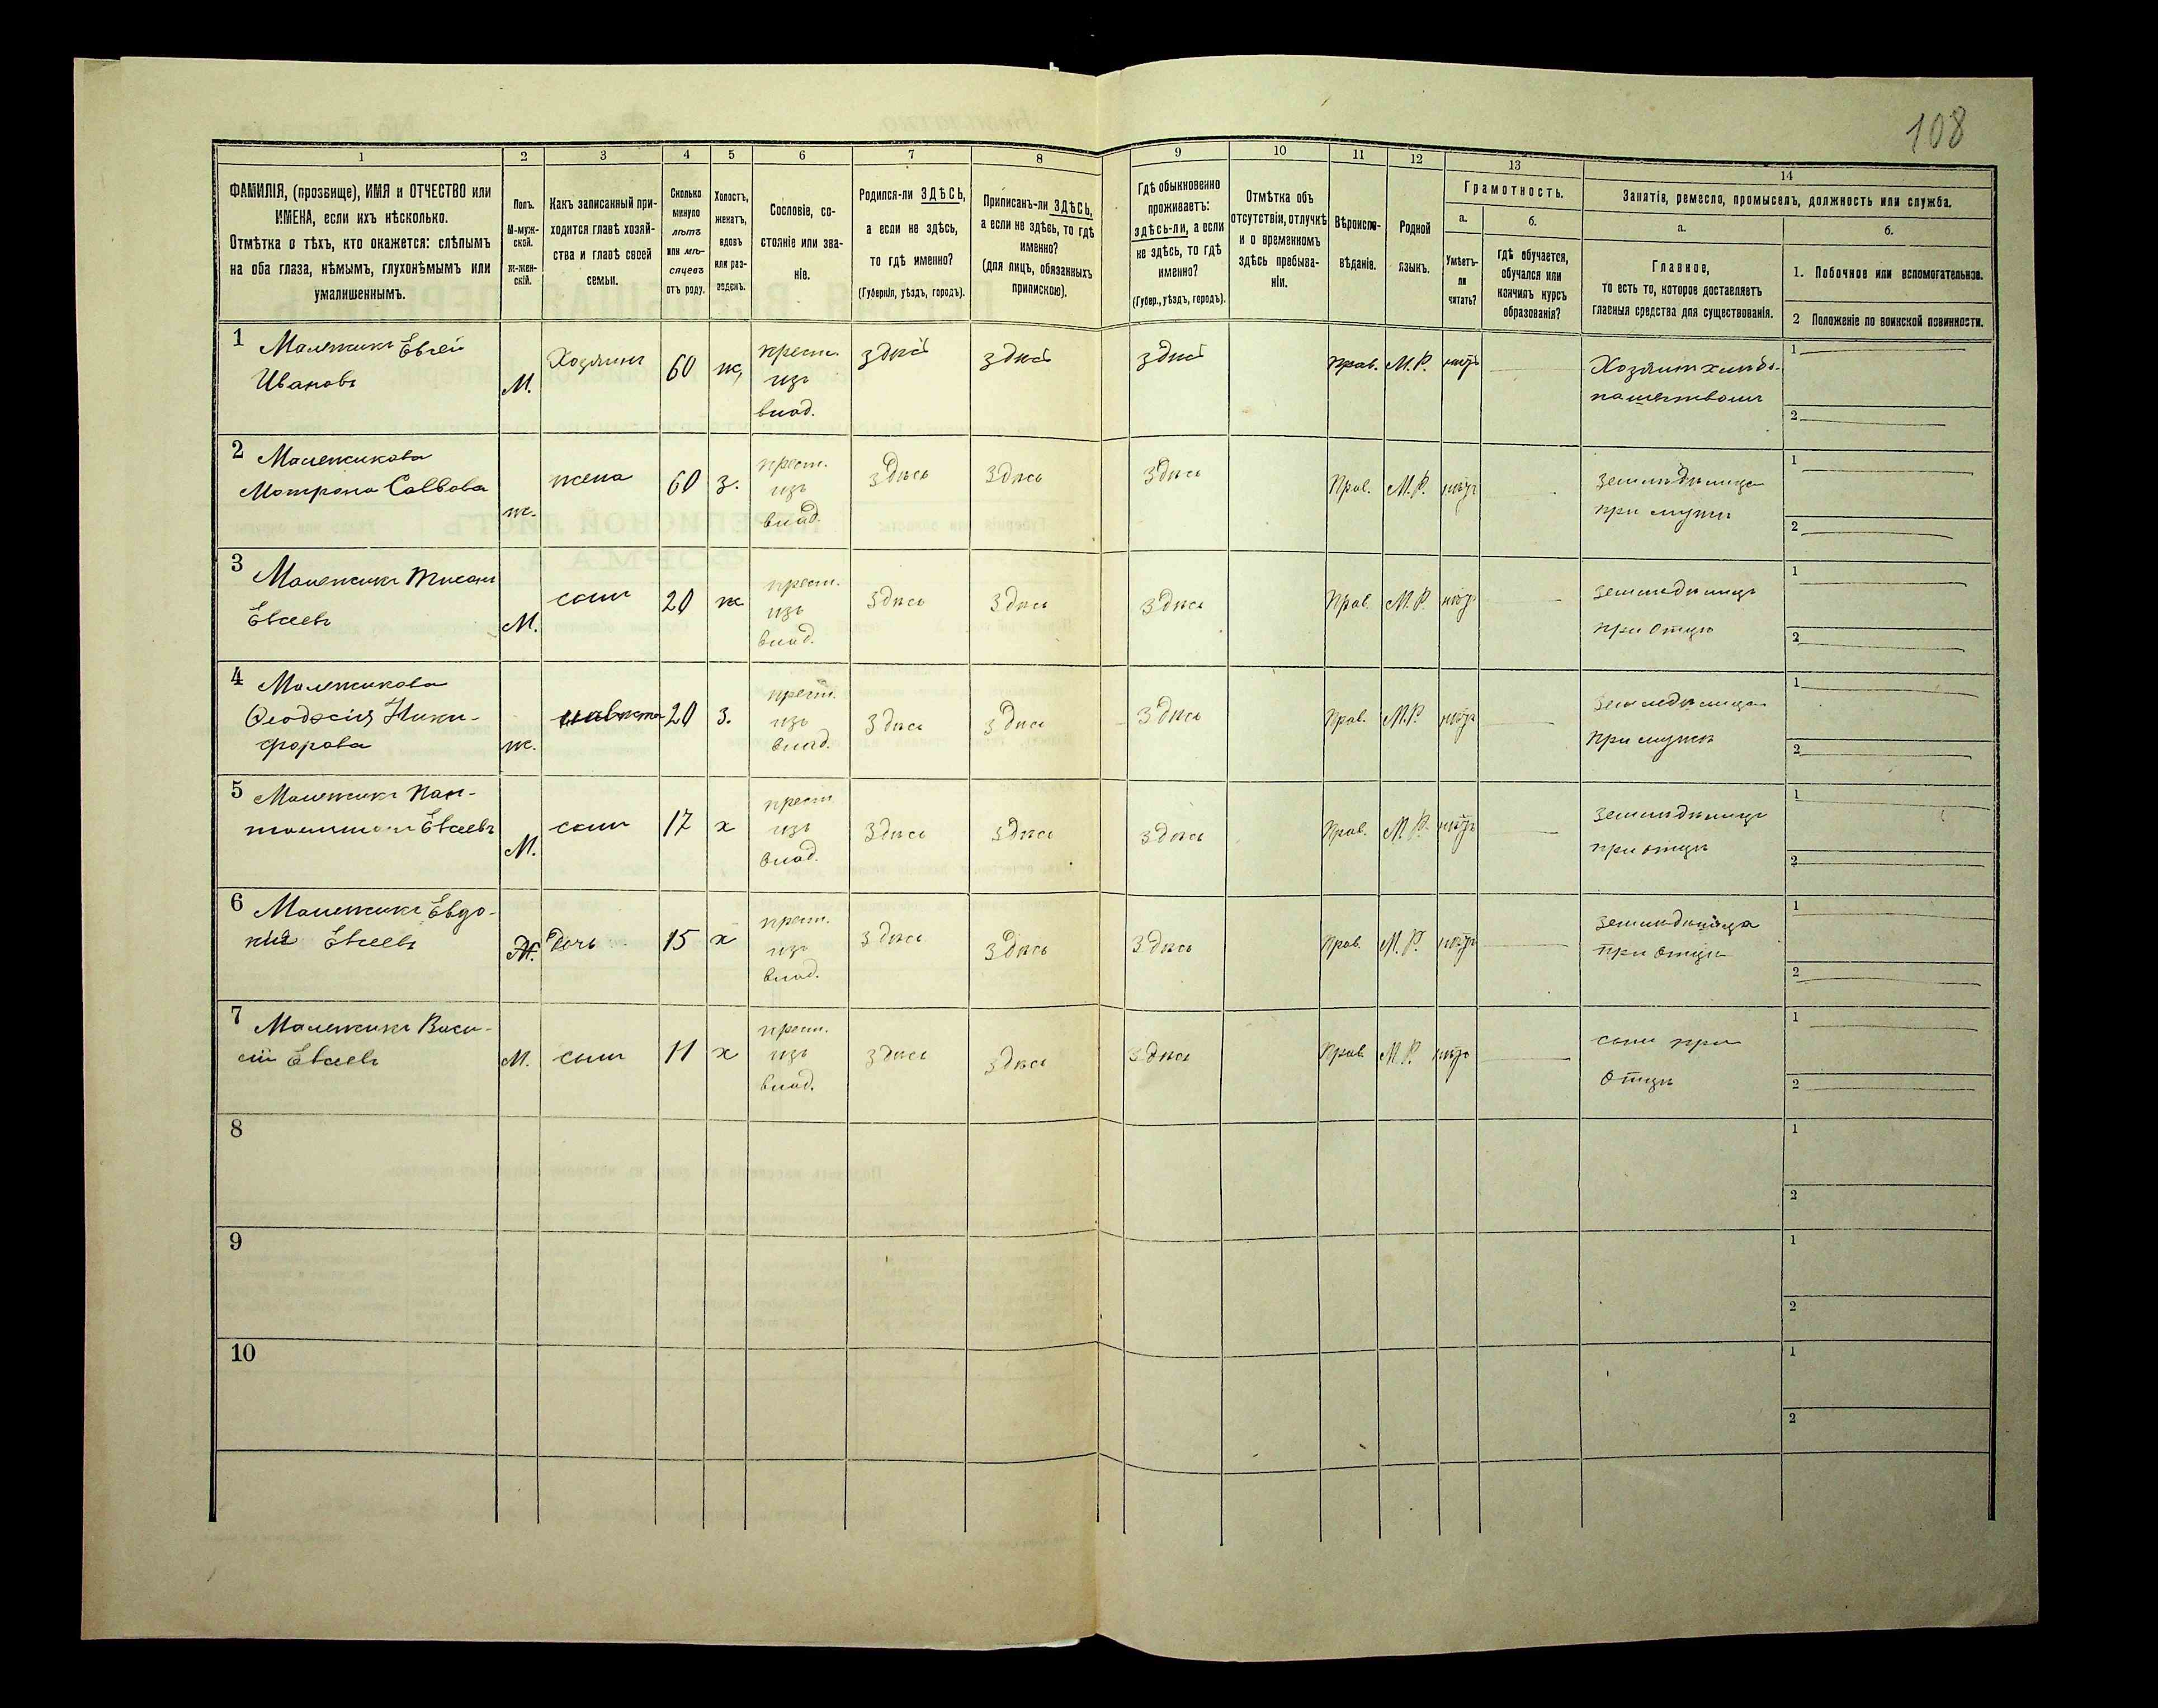 108
1 2 3 4 5 6 7 8 9 10 11 12 13 14
ФАМИЛІЯ, (прозвище), ИМЯ и ОТЧЕСТВО или
ИМЕНА, если ихъ нѣсколько.
Отмѣтка о тѣхъ, кто окажется: слѣпымъ
на оба глаза, нѣмымъ, глухонѣмымъ или
умалишеннымъ.
Полъ.
М-муж-
ской.
ж-жен-
скій.
Какъ записанный при-
ходится главѣ хозяй-
ства и главѣ своей
семьи.
Сколько
минуло
лѣтъ
или мѣ-
сяцевъ
отъ роду.
Холостъ,
женатъ,
вдовъ
или раз-
веденъ.
Сословіе, со-
стояніе или зва-
ніе.
Родился-ли ЗДѢСЬ,
а если не здѣсь,
то гдѣ именно?
(Губернія, уѣздъ, городъ).
Приписанъ-ли ЗДѢСЬ,
а если не здѣсь, то гдѣ
именно?
(для лицъ, обязанныхъ
припискою).
Гдѣ обыкновенно
проживаетъ:
здѣсь-ли, а если
не здѣсь, то гдѣ
именно?
(Губер., уѣздъ, городъ).
Отмѣтка объ
отсутствіи, отлучкѣ
и о временномъ
здѣсь пребыва-
ніи.
Вѣроиспо-
вѣданіе.
Родной
языкъ.
Грамотность.
а.
Умѣетъ-
ли
читать?
б.
гдѣ обучается,
обучался или
кончилъ курсъ
образованія?
Занятіе, ремесло, промыселъ, должность или служба.
а.
Главное,
то есть то, которое доставляетъ
главныя средства для существованія.
б.
1. Побочное или вспомогательное.
2 Положеніе по воинской повинности.
1 Малежикъ Евсей
Ивановъ
М. Хозяинъ 60 ж. крест.
изъ
влад.
здѣсь здѣсь здѣсь Прав. М.Р. нѣтъ
Хозяинъ хлѣбо-
пашествомъ
1
2
2 Малежикова
Мотрона Саввова
ж. жена 60 з. крест.
изъ
влад.
здѣсь здѣсь здѣсь Прав. М.Р. нѣтъ
земледѣлица
при мужѣ
1
2
3 Малежикъ Тихонъ
Евсеевъ
М. сынъ 20 ж крест.
изъ
влад.
здѣсь здѣсь здѣсь Прав. М.Р. нѣтъ
земледѣлицъ
при отцѣ
1
2
4 Малежикова
Феодосія Ники-
форова
ж. невѣстка 20 з. крест.
изъ
влад.
здѣсь здѣсь здѣсь Прав. М.Р. нѣтъ
земледѣлица
при мужѣ
1
2
5 Малежикъ Пан-
телимонъ Евсеевъ
М. сынъ 17 х крест.
изъ
влад.
здѣсь здѣсь здѣсь Прав. М.Р. нѣтъ
земледѣлицъ
при отцѣ
1
2
6 Малежикъ Евдо-
кія Евсеевъ
Ж. Дочь 15 х крест.
изъ
влад.
здѣсь здѣсь здѣсь Прав. М.Р. нѣтъ
земледѣлица
при отцѣ
1
2
7 Малежикъ Васи-
лій Евсеевъ
М. сынъ 11 х крест.
изъ
влад.
здѣсь здѣсь здѣсь Прав. М.Р. нѣтъ
сынъ при
отцѣ
1
2
8
1
2
9
1
2
10
1
2